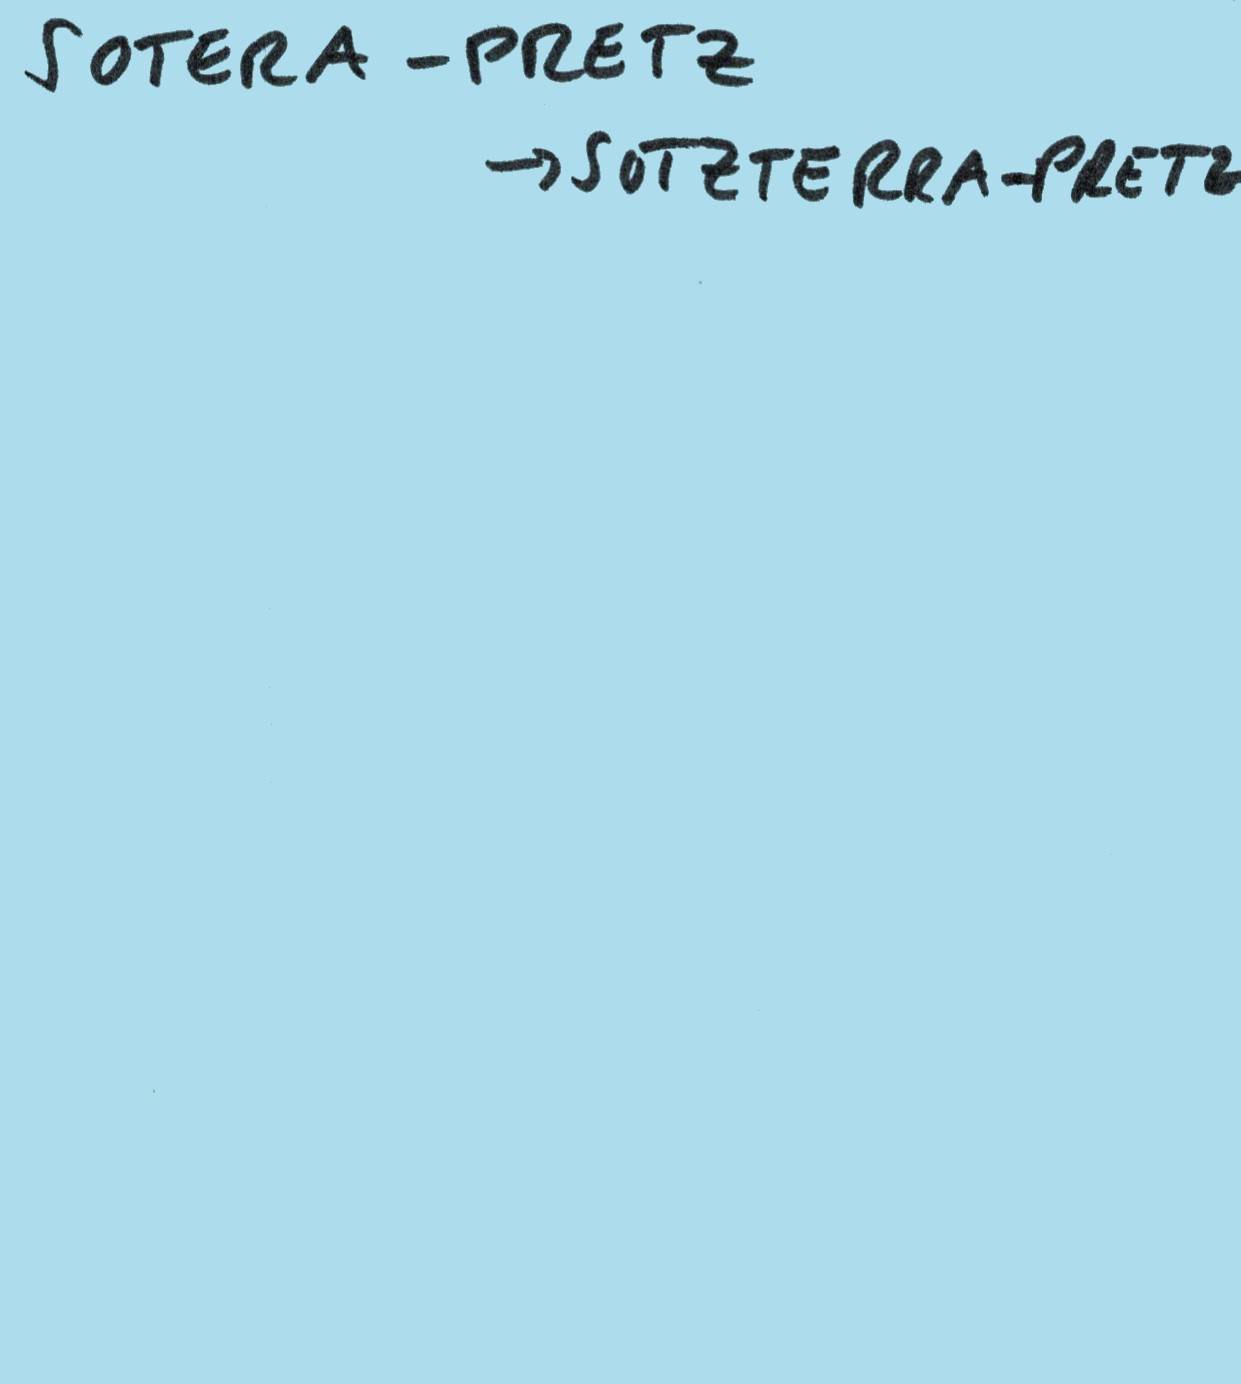 SOTERA-PRETZ
→SOTZTERRA-PRETZ